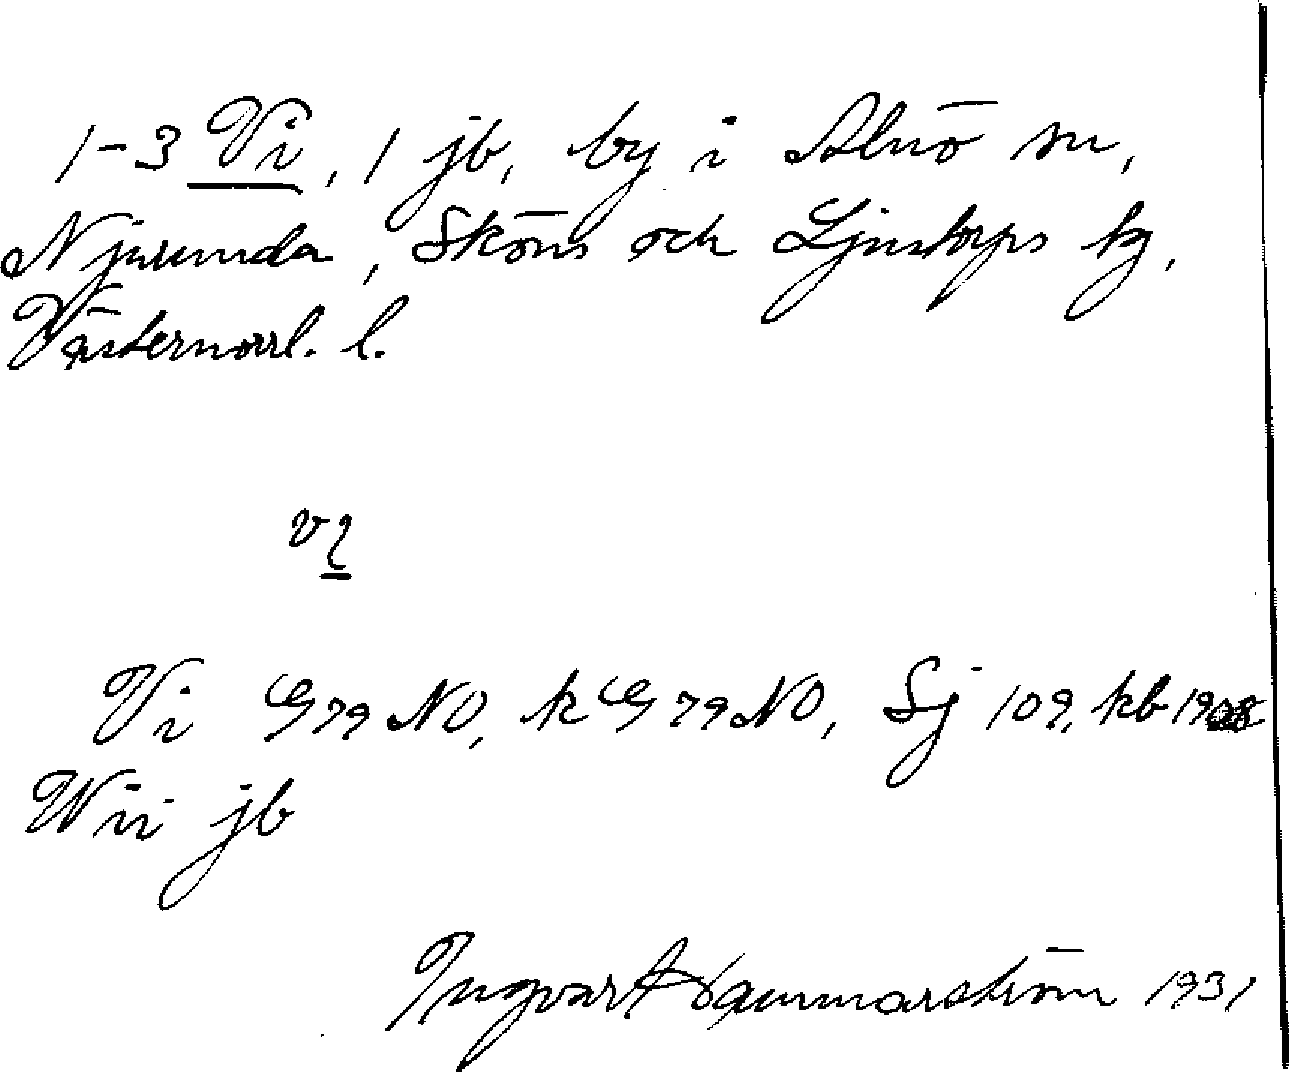 1-3 Vi, 1 jb, by i Alnö sn,
Njurunda, Sköns och Ljustorps tg,
Västernorrl. l.
Vi G 79 NO, k G 79 NO, Sj 109, kb 1908
Wii jb
Ingvar Hammarström 1931